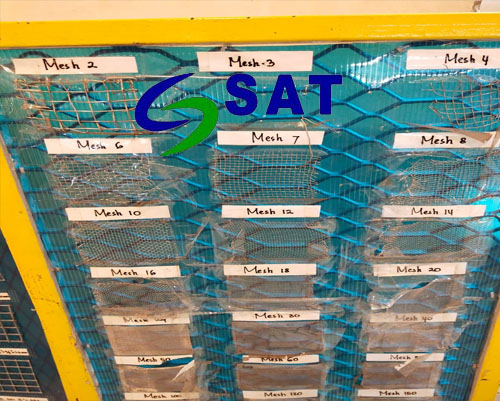 Mesh 2
Mesh-3
Mesh 4
SAT
Mesh 6
Mesh 7
Mesh 8
Mesh 10
Mesh 12
Mesh 14
Mesh 16
Mesh 18
Mesh 20
Mesh
Mesh 30
Mesh 40
Mesh 50
Mesh 60
Mesh
Mesh 100
Mesh 120
Mesh 150